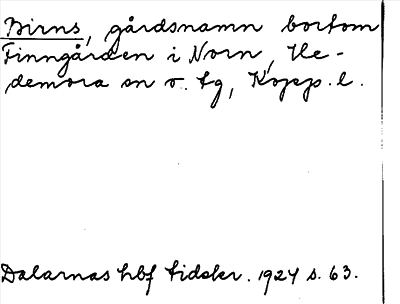 Birns, gårdsnamn bortom
Finngården i Norn, He-
demora sn o. tg, Kopp. l.
Dalarnas hbf tidskr. 1924 s. 63.